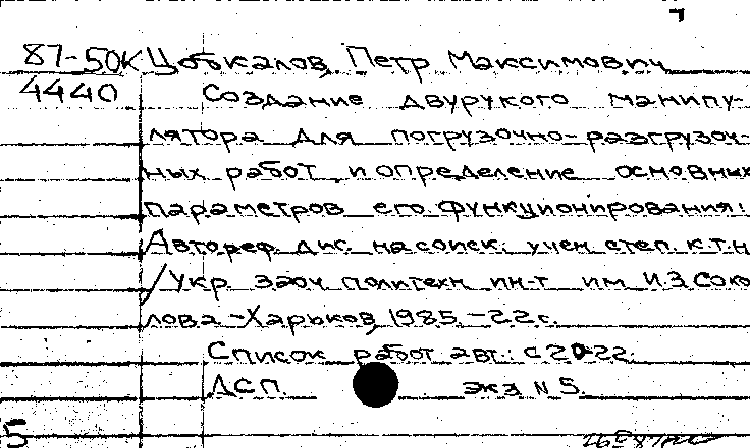 87-50К Цобкалов, Петр Максимович
4440 Создание двурукого манипу-
лятора для погрузочно-разгрузоч-
ных работ и определение основных
параметров его функционирования:
Автореф. дис. на соиск. учен. степ. к.т.н
/Укр. заоч. политехн. ин-т им. И.З. Соко
лова -Харьков, 1985.-22 с.
Список работ авт.: с 20-22.
ДСП. экз N 5.
5